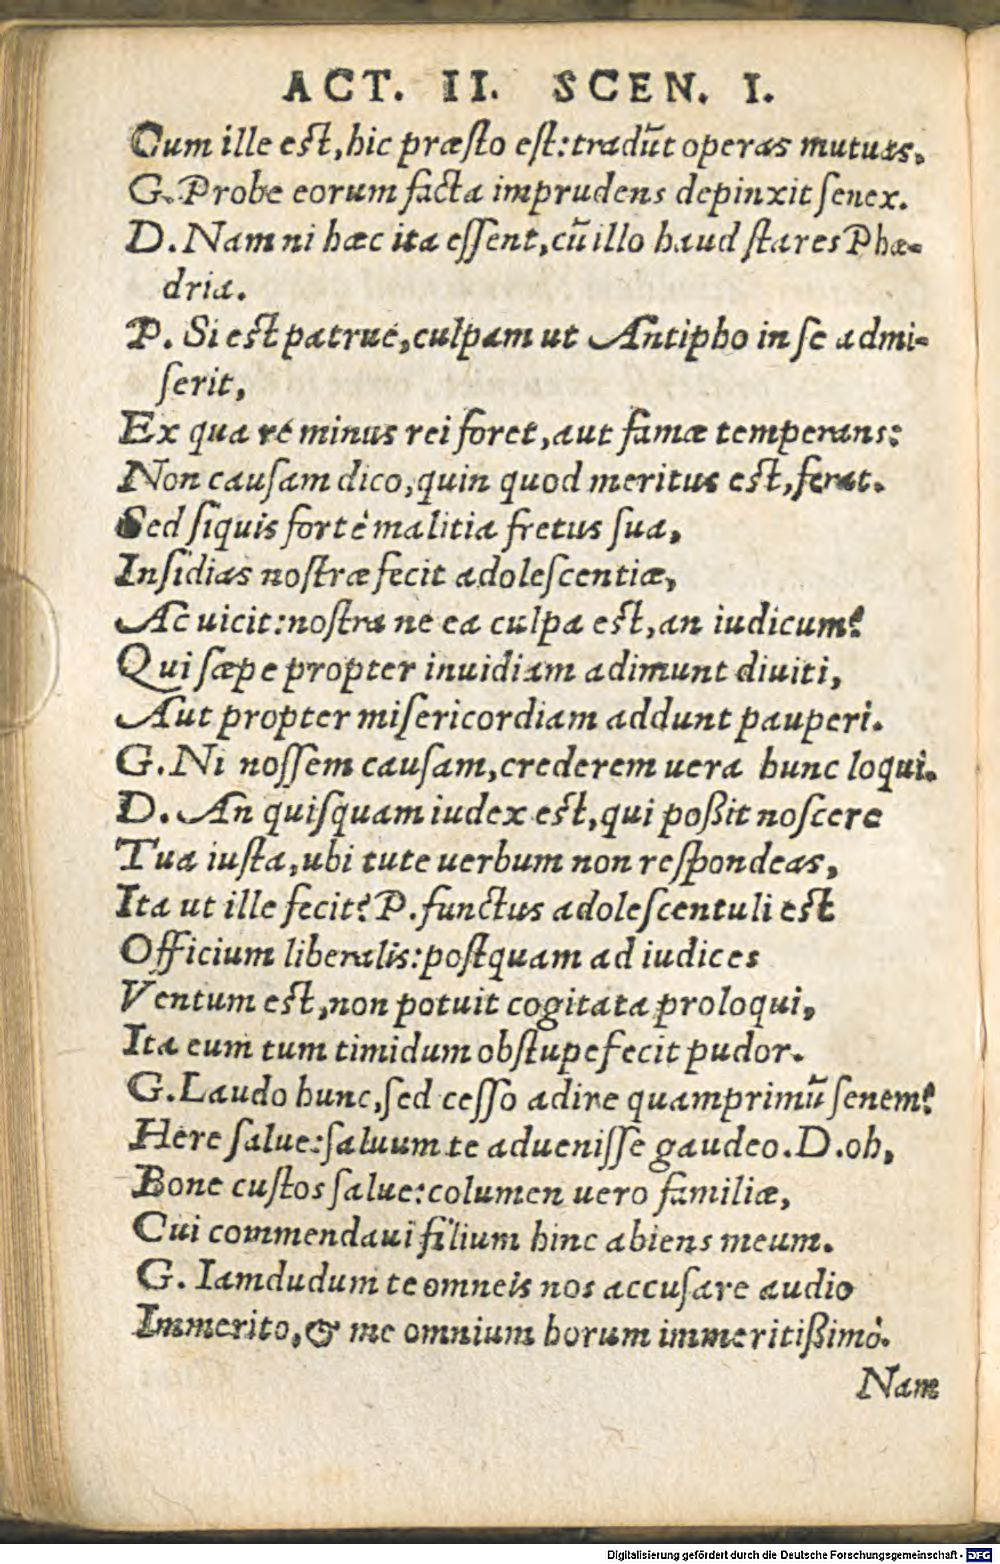 ACT. II. SCEN. I.
Cum ille est, hic præsto est: tradũt operas mutuas.
G. Probe eorum facta imprudens depinxit senex.
D. Nam ni hæc ita essent, cũ illo haud stares Phæ-
dria.
P. Si est patrué, culpam ut Antipho in se admi-
serit,
Ex qua ré minus rei foret, aut famæ temperans:
Non causam dico, quin quod meritus est, ferat.
Sed siquis forté malitia fretus sua,
Insidias nostræ fecit adolescentiæ,
Ac uicit: nostra ne ea culpa est, an iudicum?
Qui sæpe propter inuidiam adimunt diuiti,
Aut propter misericordiam addunt pauperi.
G. Ni nossem causam, crederem uera hunc loqui.
D. An quisquam iudex est, qui poßit noscere
Tua iusta, ubi tute uerbum non respondeas,
Ita ut ille fecit? P. functus adolescentuli est
Officium liberalis: postquam ad iudices
Ventum est, non potuit cogitata proloqui,
Ita eum tum timidum obstupefecit pudor.
G. Laudo hunc, sed cesso adire quamprimũ senem?
Here salue: saluum te aduenisse gaudeo. D. oh,
Bone custos salue: columen uero familiæ,
Cui commendaui filium hinc abiens meum.
G. Iamdudum te omneis nos accusare audio
Immerito, & me omnium horum immeritißimò.
Nam
Digitalisierung gefördert durch die Deutsche Forschungsgemeinschaft - DFG